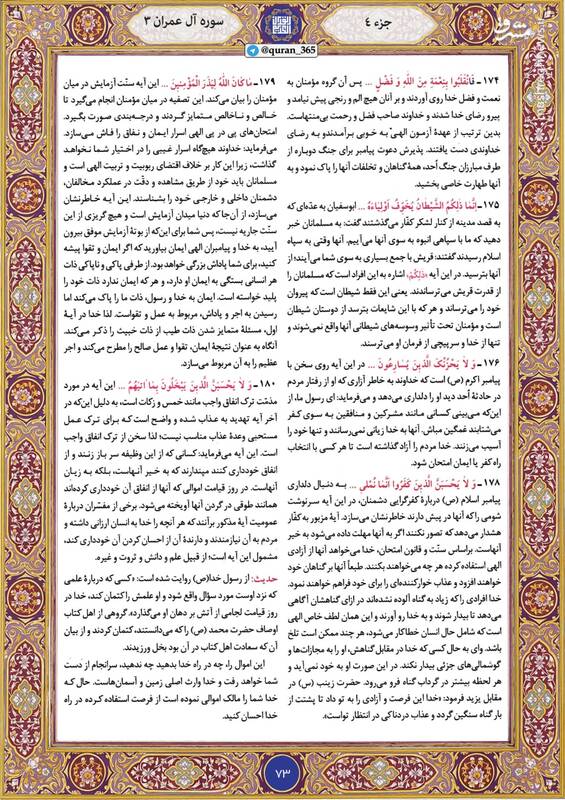 سوره آل عمران ۳
جزء ٤
@quran_365
مشرق
۱۷۴- فَانْقَلَبُوا بِنِعْمَةٍ مِنَ اللَّهِ وَ فَضْلٍ ... پس آن گروه مؤمنان به
نعمت و فضل خدا روی آوردند و بر آنان هیچ الم و رنجی پیش نیامد و
پیرو رضای خدا شدند و خداوند صاحب فضل و رحمت بی‌منتهاست.
بدین ترتیب از عهدهٔ آزمون الهی به خوبی برآمدند و به رضای
خداوندی دست یافتند. پذیرش دعوت پیامبر برای جنگ دوباره از
طرف مبارزان جنگ اُحد، همهٔ گناهان و تخلفات آنها را پاک نمود و به
آنها طهارت خاصی بخشید.
۱۷۵- إِنَّمَا ذَلِكُمُ الشَّيْطَانُ يُخَوِّفُ أَوْلِيَاءَهُ ... ابوسفیان به عدّه‌ای که
به قصد مدینه از کنار لشکر کفّار می‌گذشتند گفت: به مسلمانان خبر
دهید که ما با سپاهی انبوه به سوی آنها می‌آییم. آنها وقتی به سپاه
اسلام رسیدند گفتند: قریش با جمع بسیاری به سوی شما می‌آیند؛ از
آنها بترسید. در این آیه «ذلِکُمْ» اشاره به این افراد است که مسلمانان را
از قدرت قریش می‌ترساندند. یعنی این فقط شیطان است که پیروان
خود را می‌ترساند و هر که با این شایعات بترسد از دوستان شیطان
است و مؤمنان تحت تأثیر وسوسه‌های شیطانی آنها واقع نمی‌شوند و
تنها از خدا و سرپیچی از فرمان او می‌ترسند.
۱۷۶- وَ لَا يَحْزُنْكَ الَّذِينَ يُسَارِعُونَ ... در این آیه روی سخن با
پیامبر اکرم (ص) است که خداوند به خاطر آزاری که او از رفتار مردم
در حادثهٔ اُحد دید او را دلداری می‌دهد و می‌فرماید: ای رسول ما، از
این‌که می‌بینی کسانی مانند مشرکین و منافقین به سوی کفر
می‌شتابند غمگین مباش. آنها به خدا زیانی نمی‌رسانند و تنها خود را
آسیب می‌زنند. خدا مردم را آزاد گذاشته است تا هر کسی با انتخاب
راه کفر یا ایمان امتحان شود.
۱۷۸- وَ لَا يَحْسَبَنَّ الَّذِينَ كَفَرُوا أَنَّمَا نُمْلِي ... به دنبال دلداری
پیامبر اسلام (ص) دربارهٔ کفرگرایی دشمنان، در این آیه سرنوشت
شومی را که آنها در پیش دارند خاطرنشان می‌سازد. آیهٔ مزبور به کفّار
هشدار می‌دهد که تصور نکنند اگر به آنها مهلت داده می‌شود به خیر
آنهاست. براساس سنّت و قانون امتحان، خدا می‌خواهد آنها از آزادی
الهی استفاده کرده هر چه می‌خواهند بکنند. طبعاً آنها بر گناهان خود
خواهند افزود و عذاب خوارکننده‌ای را برای خود فراهم خواهند نمود.
خدا افرادی را که زیاد به گناه آلوده نشده‌اند در ازای گناهشان آگاهی
می‌دهد تا بیدار شوند و به خدا رو آورند، و این همان لطف خاص الهی
است که شامل حال انسان خطاکار می‌شود، هر چند ممکن است تلخ
باشد. وای به حال کسی که خدا در مقابل گناهش، او را به مجازات‌ها و
گوشمالی‌های جزئی بیدار نکند. در این صورت او به خود نمی‌آید و
هر لحظه بیشتر در گرداب گناه فرو می‌رود. حضرت زینب (س) در
مقابل یزید فرمود: «خدا این فرصت و آزادی را به تو داد تا پشتت از
بار گناه سنگین گردد و عذاب دردناکی در انتظار تواست».
۱۷۹- مَا كَانَ اللَّهُ لِيَذَرَ الْمُؤْمِنِينَ ... این آیه سنّت آزمایش در میان
مؤمنان را بیان می‌کند. این تصفیه در میان مؤمنان انجام می‌گیرد تا
خالص و ناخالص متمایز گردند و درجه‌بندی صورت بگیرد.
امتحان‌های پی در پی الهی اسرار ایمان و نفاق را فاش می‌سازد.
می‌فرماید: خداوند هیچ‌گاه اسرار غیبی را در اختیار شما نخواهد
گذاشت، زیرا این کار بر خلاف اقتضای ربوبیت و تربیت الهی است و
مسلمانان باید خود از طریق مشاهده و دقّت در عملکرد مخالفان،
دشمنان داخلی و خارجی خود را بشناسند. این آیه خاطرنشان
می‌سازد، از آن‌جا که دنیا میدان آزمایش است و هیچ گریزی از این
سنّت جاریه نیست، پس شما برای این‌که از بوتهٔ آزمایش موفق بیرون
آیید، به خدا و پیامبران الهی ایمان بیاورید که اگر ایمان و تقوا پیشه
کنید، برای شما پاداش بزرگی خواهد بود. از طرفی پاکی و ناپاکی ذات
هر انسانی بستگی به ایمان او دارد، و هر که ایمان ندارد ذات خود را
پلید خواسته است. ایمان به خدا و رسول، ذات ما را پاک می‌کند اما
رسیدن به اجر و پاداش، مربوط به عمل و تقواست. لذا خدا در آیهٔ
اول، مسئلهٔ متمایز شدن ذات طیب از ذات خبیث را ذکر می‌کند.
آنگاه به عنوان نتیجهٔ ایمان، تقوا و عمل صالح را مطرح می‌کند و اجر
عظیم را به آن مربوط می‌سازد.
۱۸۰- وَ لَا يَحْسَبَنَّ الَّذِينَ يَبْخَلُونَ بِمَا آتَيهُمْ ... این آیه در مورد
مذمّت ترک انفاق واجب مانند خمس و زکات است، به دلیل این‌که در
آخر آیه تهدید به عذاب شده و واضح است که برای ترک عمل
مستحبی وعدهٔ عذاب مناسب نیست؛ لذا سخن از ترک انفاق واجب
است. این آیه می‌فرماید: کسانی که از این وظیفه سر باز زنند و از
انفاق خودداری کنند مپندارند که به خیر آنهاست، بلکه به زیان
آنهاست. در روز قیامت اموالی که آنها از انفاق آن خودداری کرده‌اند
همانند طوقی در گردن آنها آویخته می‌شود. برخی از مفسّران دربارهٔ
عمومیت آیهٔ مذکور برآنند که هر آنچه را خدا به انسان ارزانی داشته و
مردم به آن نیازمندند و دارندهٔ آن از احسان کردن آن خودداری کند،
مشمول این آیه است؛ از قبیل علم و دانش و ثروت و غیره.
حدیث: از رسول خدا(ص) روایت شده است: «کسی که دربارهٔ علمی
که نزد اوست مورد سؤال واقع شود و او علمش را کتمان کند، خدا در
روز قیامت لجامی از آتش بر دهان او می‌گذارد». گروهی از اهل کتاب
اوصاف حضرت محمد (ص) را که می‌دانستند، کتمان کردند و از بیان
آن که سعادت اهل کتاب در آن بود بخل ورزیدند.
این اموال را، چه در راه خدا بدهید چه ندهید، سرانجام از دست
شما خواهد رفت و خدا وارث اصلی زمین و آسمان‌هاست. حال که
خدا شما را مالک اموالی نموده است از فرصت استفاده کرده در راه
خدا احسان کنید.
۷۳